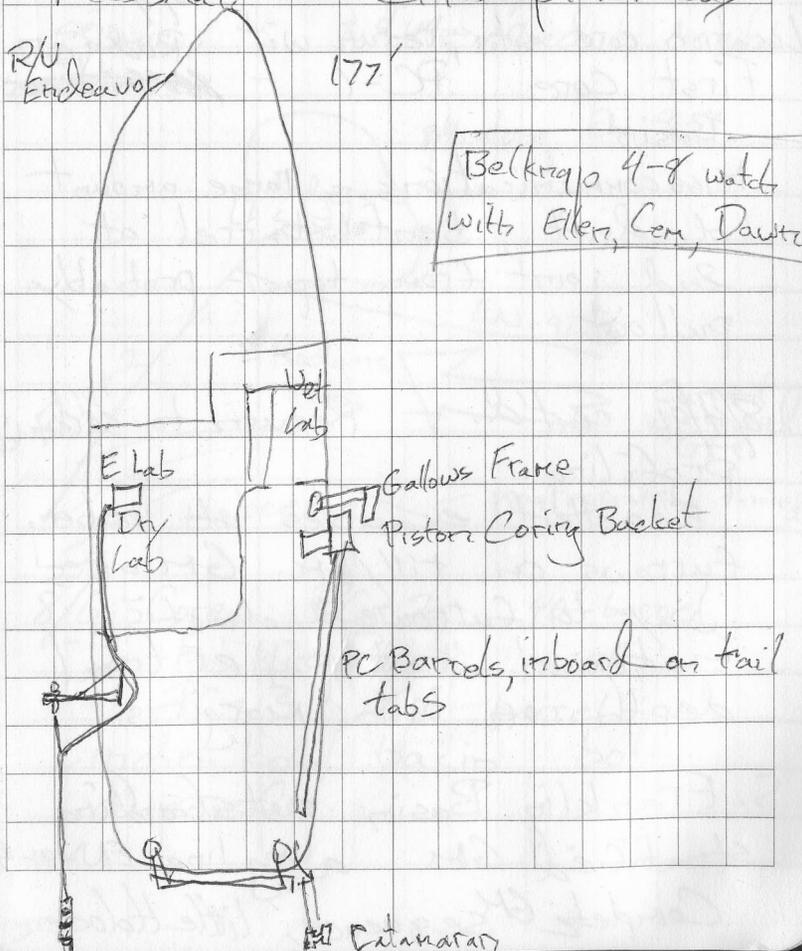 R/V
Endeavor
177'
Belknap 4-8 watch
with Ellen, Cem, Dawn
Wet
Lab
E Lab
Dry
Lab
Gallows Frame
Piston Coring Bucket
PC Barrels, inboard on rail
tabs
Catamaran